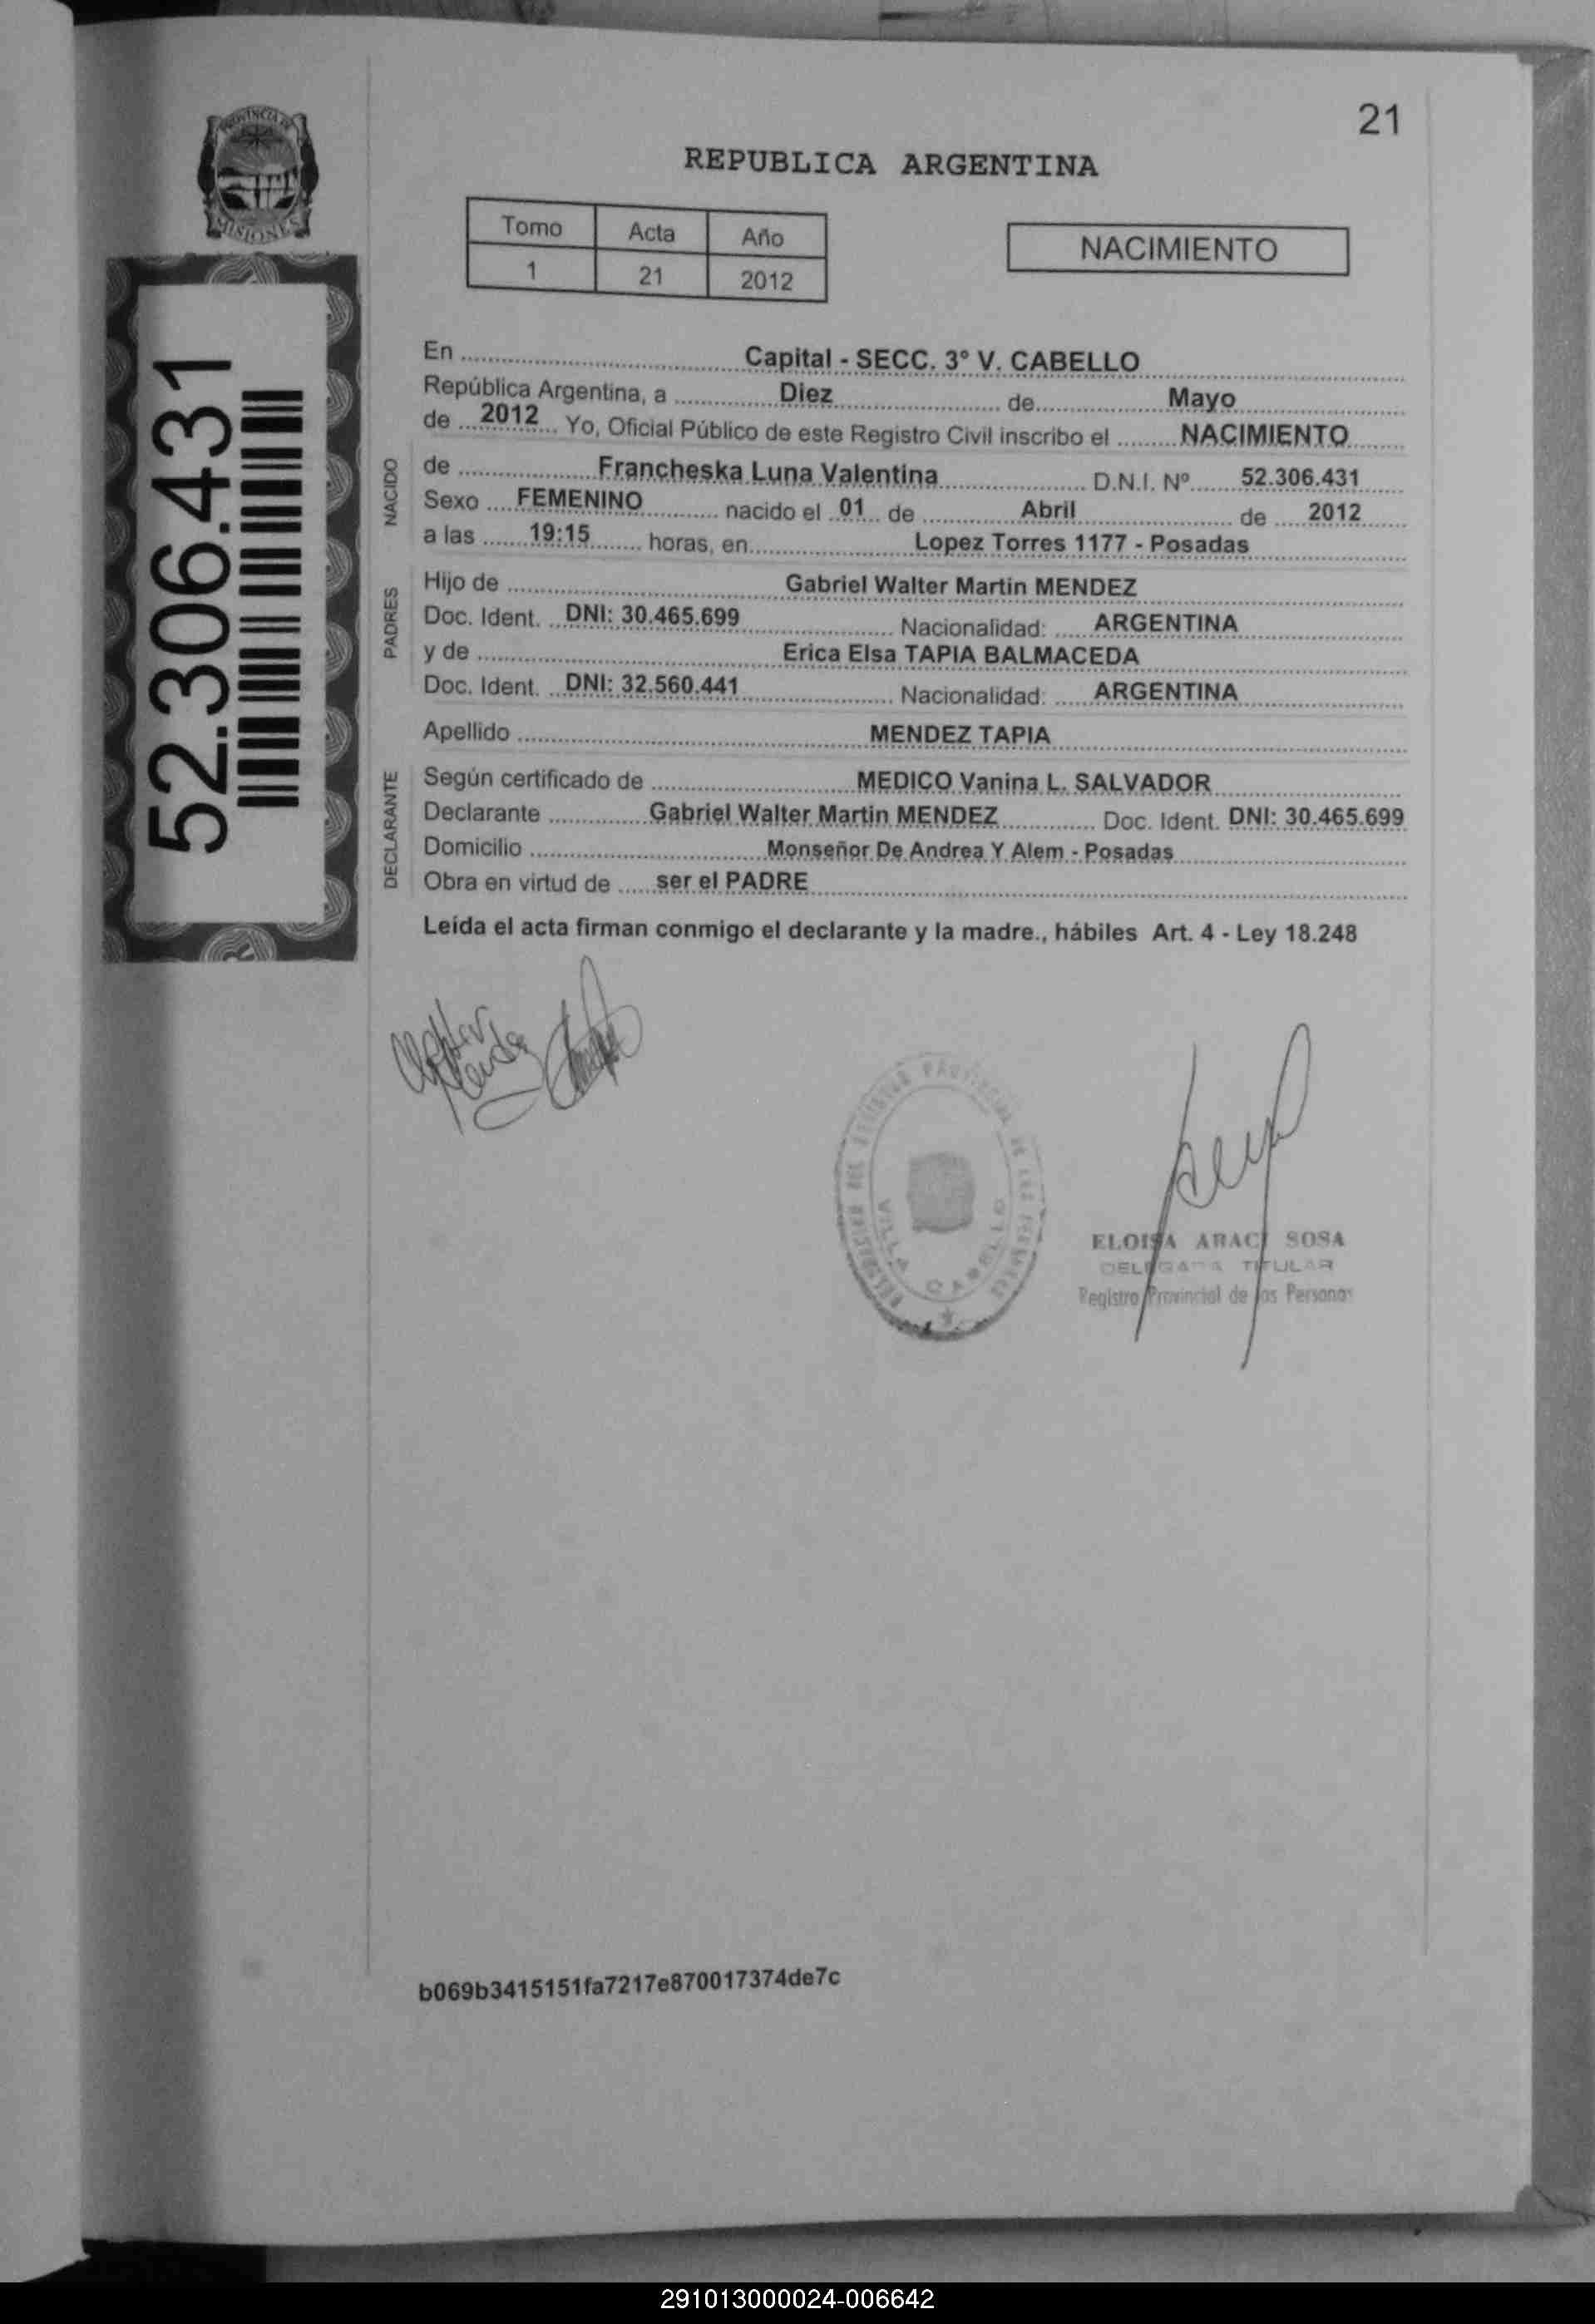 21
PROVINCIA DE
MISIONES
REPUBLICA ARGENTINA
Tomo Acta Año
1 21 2012
NACIMIENTO
52.306.431
En Capital - SECC. 3º V. CABELLO
República Argentina, a Diez de Mayo
de 2012 Yo, Oficial Público de este Registro Civil inscribo el NACIMIENTO
NACIDO
de Francheska Luna Valentina D.N.I. Nº 52.306.431
Sexo FEMENINO nacido el 01 de Abril de 2012
a las 19:15 horas, en Lopez Torres 1177 - Posadas
PADRES
Hijo de Gabriel Walter Martin MENDEZ
Doc. Ident. DNI: 30.465.699 Nacionalidad: ARGENTINA
y de Erica Elsa TAPIA BALMACEDA
Doc. Ident. DNI: 32.560.441 Nacionalidad: ARGENTINA
Apellido MENDEZ TAPIA
DECLARANTE
Según certificado de MEDICO Vanina L. SALVADOR
Declarante Gabriel Walter Martin MENDEZ Doc. Ident. DNI: 30.465.699
Domicilio Monseñor De Andrea Y Alem - Posadas
Obra en virtud de ser el PADRE
Leída el acta firman conmigo el declarante y la madre., hábiles Art. 4 - Ley 18.248
VILLA CABELLO
ELOISA ARACI SOSA
DELEGADA TITULAR
Registro Provincial de las Personas
b069b3415151fa7217e870017374de7c
291013000024-006642